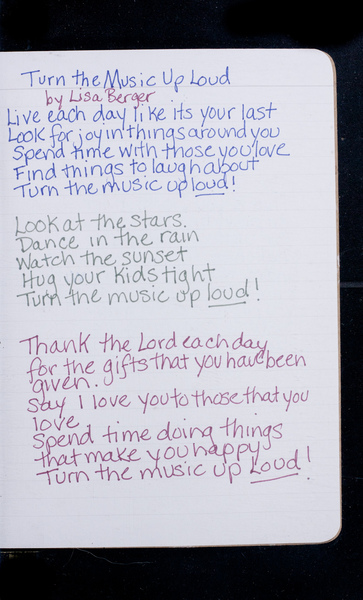 Turn the Music Up Loud
by Lisa Berger
Live each day like its your last
Look for joy in things around you
Spend time with those you love
Find things to laugh about
Turn the music up loud!
Look at the stars.
Dance in the rain
Watch the sunset
Hug your kids tight
Turn the music up loud!
Thank the Lord each day
for the gifts that you have been
given.
Say I love you to those that you
love
Spend time doing things
that make you happy
Turn the music up Loud!